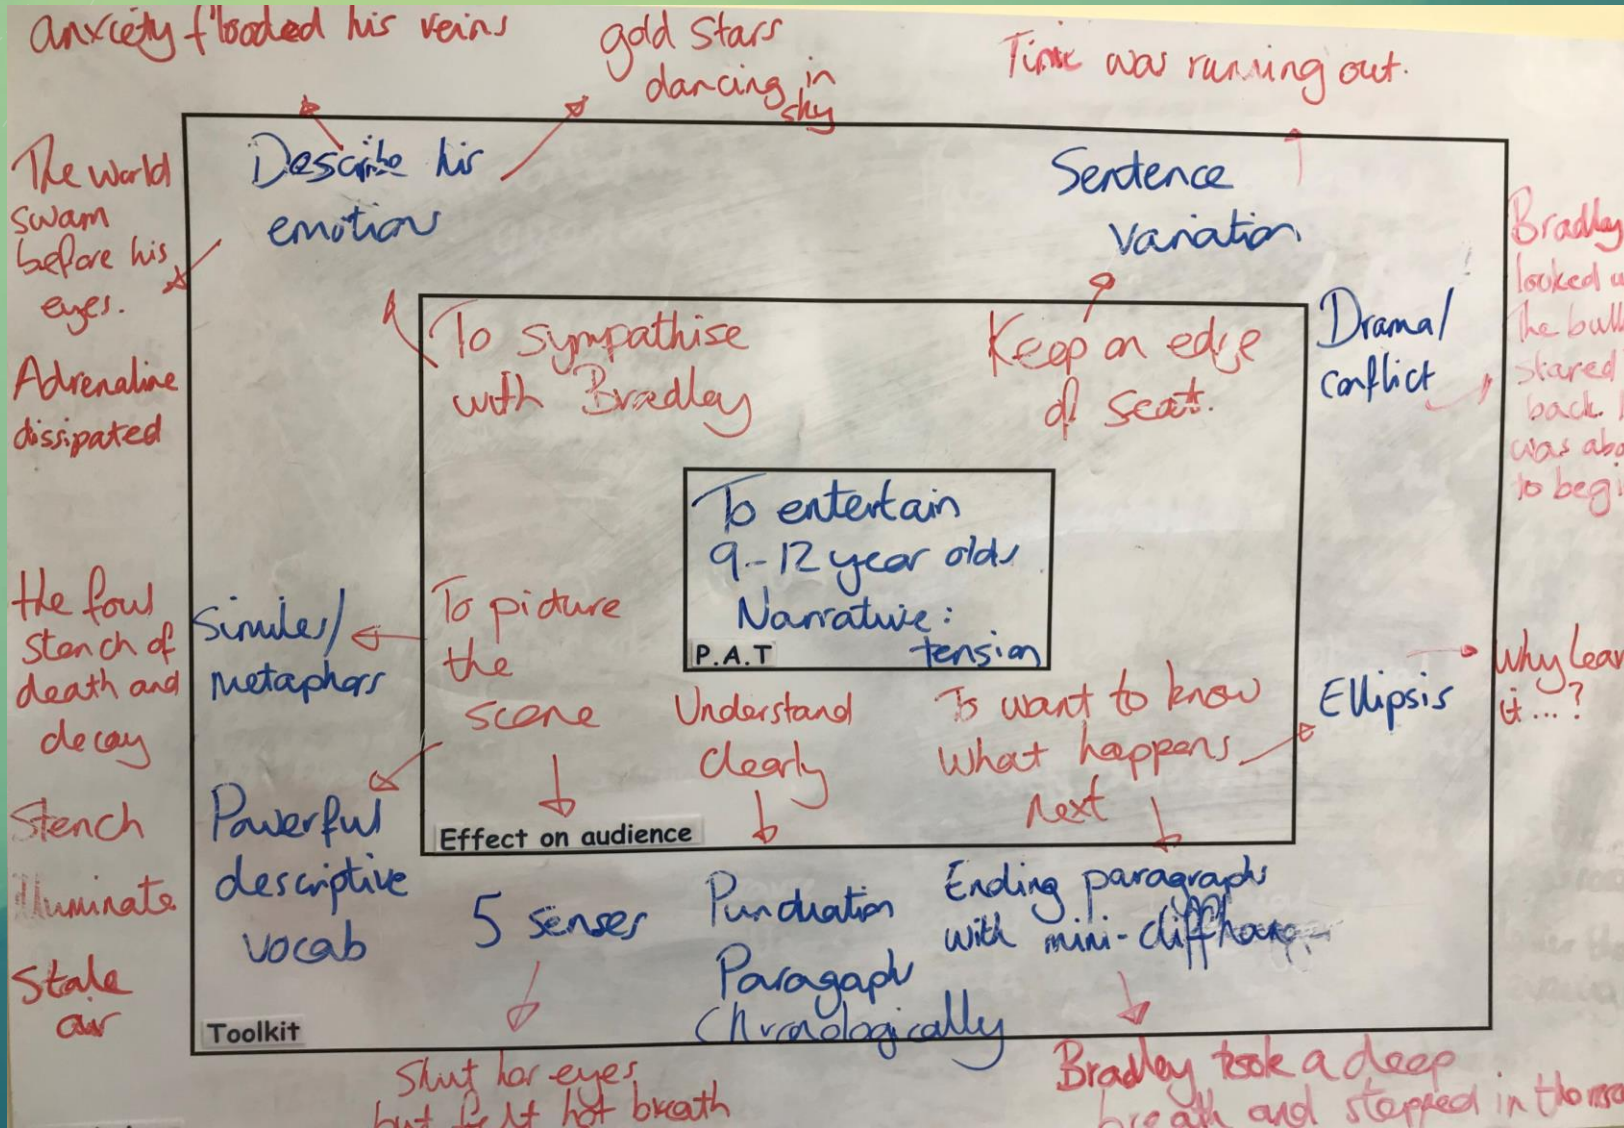 anxciety flooded his veins
gold stars
dancing in
sky
Time was running out.
The world
swam
before his
eyes.
Adrenaline
dissipated
the foul
stench of
death and
decay
Stench
illuminate
Stale
air
Describe his
emotions
Sentence
variation
Drama/
conflict
Bradley
looked
The
stared
back.
was
to
To sympathise
with Bradley
Keep on edge
of seat.
To entertain
9-12 year olds
Narrative:
tension
P.A.T
Similes/
metaphors
To picture
the
scene
Understand
clearly
To want to know
what happens
next
Ellipsis
Why
it...?
Effect on audience
Powerful
descriptive
vocab
5 senses
Punctuation
Paragaph
Chronologically
Ending paragraphs
with mini-cliffhanger
Toolkit
Shut her eyes
but felt hot breath
Bradley took a deep
breath and stepped in